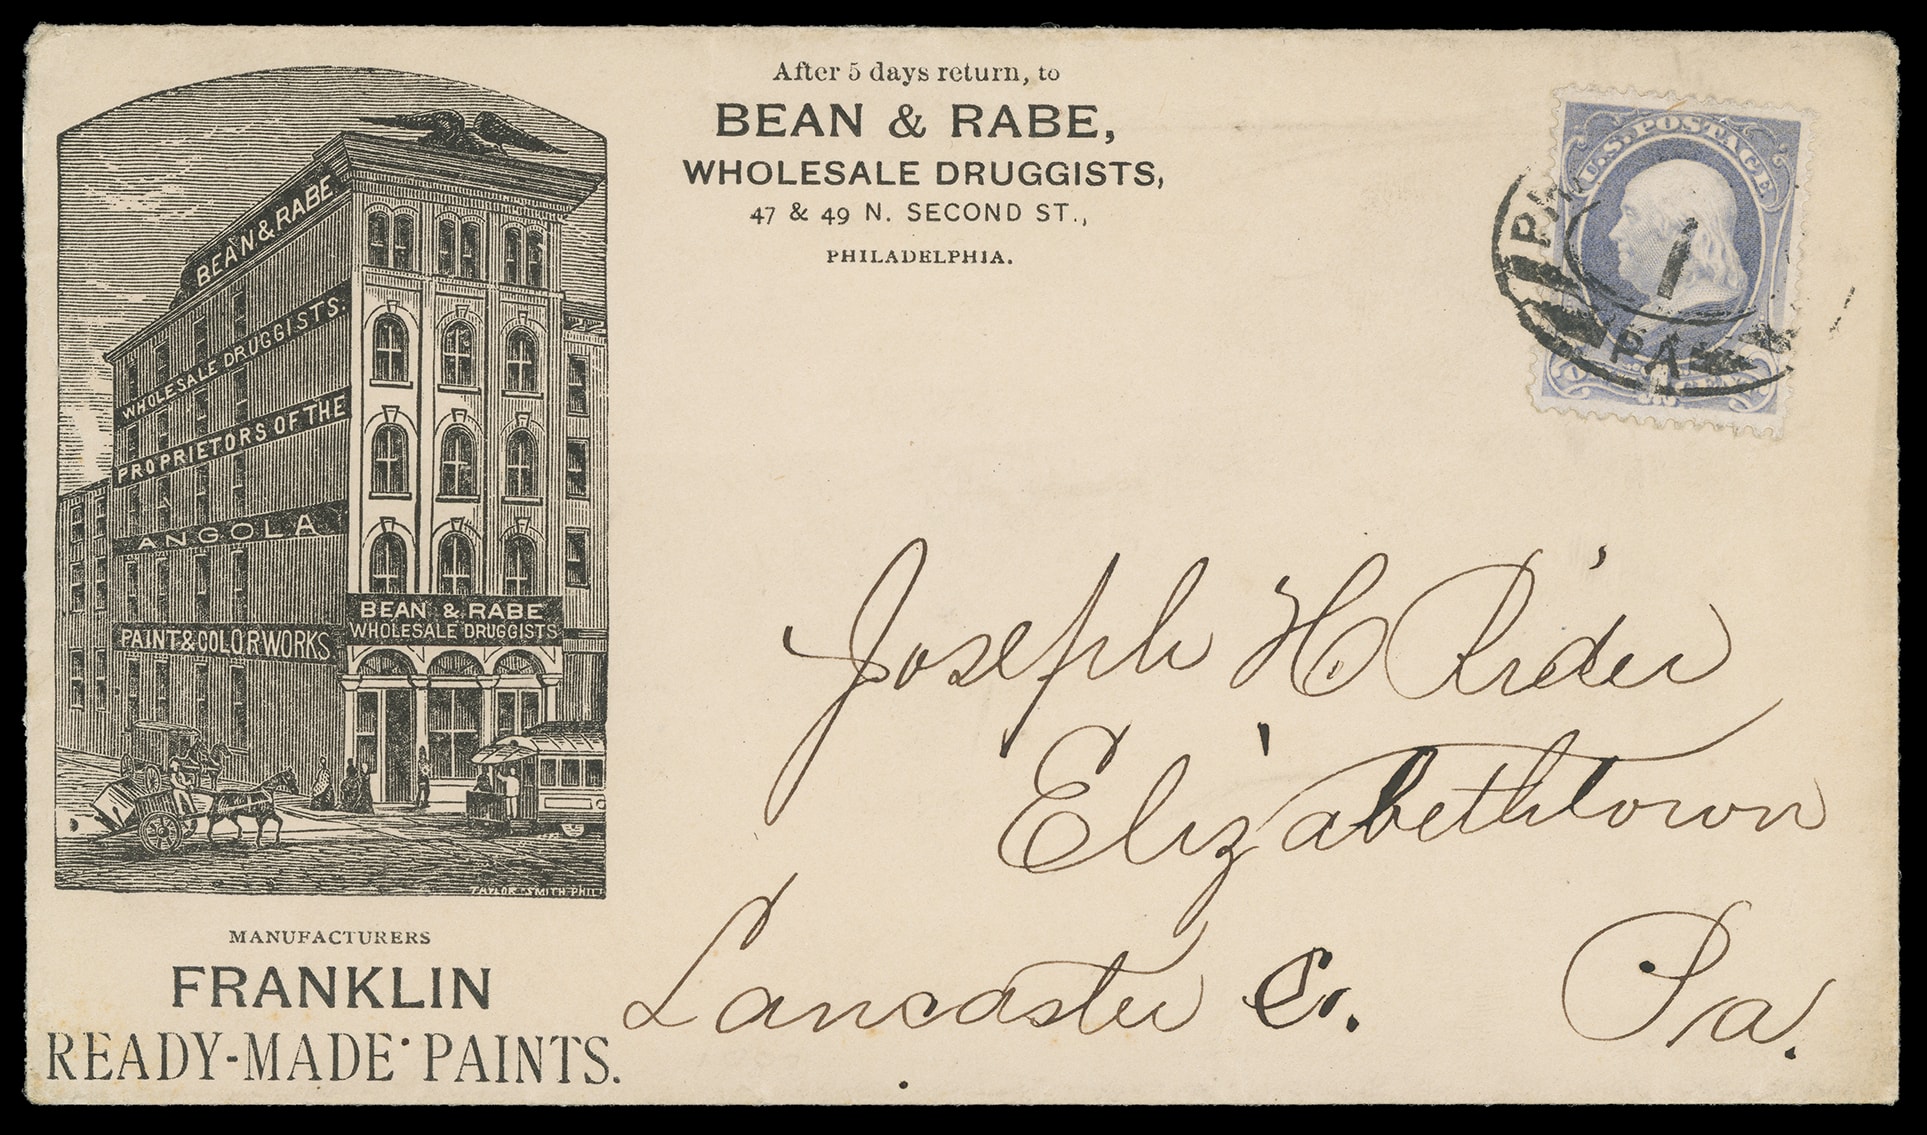 After 5 days return, to
BEAN & RABE,
WHOLESALE DRUGGISTS,
47 & 49 N. SECOND ST.,
PHILADELPHIA.
U.S. POSTAGE
1
PA
BEAN & RABE
WHOLESALE DRUGGISTS.
PROPRIETORS OF THE
ANGOLA
PAINT & COLOR WORKS
BEAN & RABE
WHOLESALE DRUGGISTS
TAYLOR & SMITH PHIL
MANUFACTURERS
FRANKLIN
READY-MADE PAINTS.
Joseph H Rider
Elizabethtown
Lancaster Co. Pa.